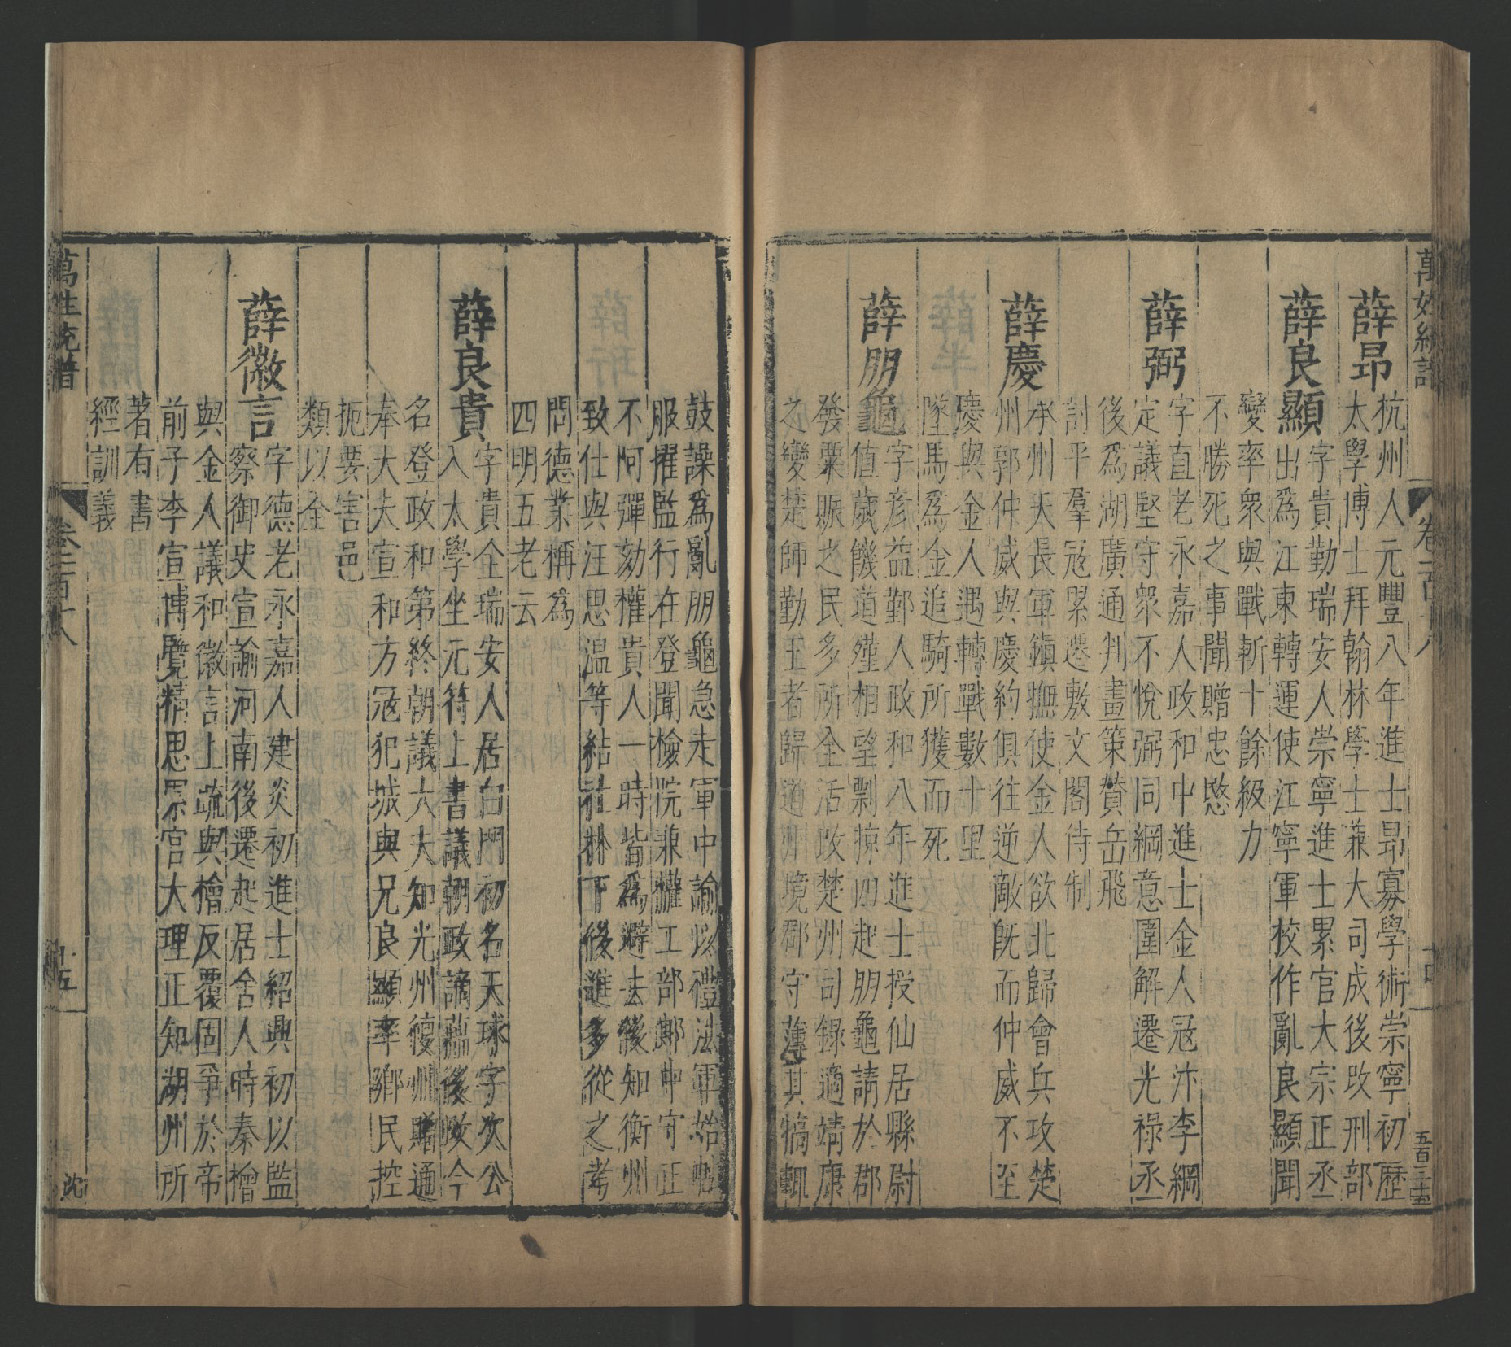 萬姓統譜
卷一百十八
薛昂
杭州人元豐八年進士昂寡學術崇寧初歷
太學博士拜翰林學士兼大司成後改刑部
薛良顯
字貴勤瑞安人崇寧進士累官大宗正丞
出為江東轉運使江寧軍校作亂良顯聞
變率衆與戰斬十餘級力
不勝死之事聞贈忠愍
薛弼
字直老永嘉人政和中進士金人冦汴李綱
定議堅守衆不悅弼同綱意圍解遷光祿丞
後為湖廣通判畫策贊岳飛
討平羣冦累遷敷文閣待制
薛慶
承州天長軍鎮撫使金人欲北歸會兵攻楚
州郭仲威與慶約俱往逆敵旣而仲威不至
慶與金人遇轉戰數十里
墜馬為金追騎所獲而死
薛朋龜
字彦益鄞人政和八年進士授仙居縣尉
值歲饑道殣相望剽掠四起朋龜請於郡
發粟賑之民多所全活改楚州司録適靖康
之變楚師勤王者歸道州境郡守薄其犒輒
鼓譟為亂朋龜急走軍中諭以禮法軍始帖
服擢監行在登聞檢院兼權工部郎中守正
不阿彈劾權貴人一時皆為避去後知衡州
致仕與汪思溫等結社林下後進多從之考
問德業稱為
四明五老云
薛良貴
字貴全瑞安人居白門初名天球字次公
入太學坐元符上書議朝政謫齕後改今
名登政和第終朝議大夫知光州後州贈通
奉大夫宣和方冦犯城與兄良顯率鄉民控
扼要害邑
類以全
薛徽言
字德老永嘉人建炎初進士紹興初以監
察御史宣諭河南後遷起居舍人時秦檜
與金人議和徽言上疏與檜反覆固爭於帝
前子季宣博覽精思累官大理正知湖州所
著有書
經訓義
萬姓統譜
卷一百十八
沈